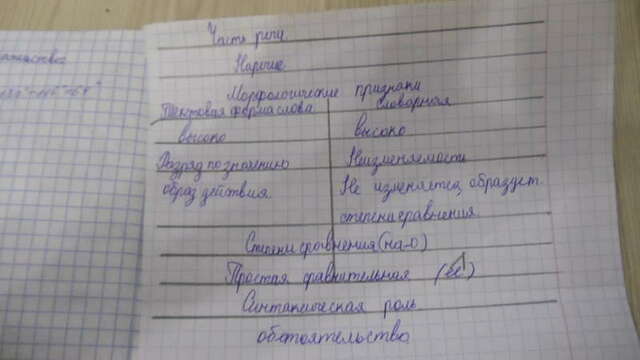 Часть речи
Наречие
Морфологические признаки
Текстовая форма слова Словарная
высоко высоко
Разряд по значению Неизменяемость
образ действия. Не изменяется, образует.
степени сравнения
Степени сравнения (на -о)
Простая сравнительная
Синтаксическая роль
обстоятельство